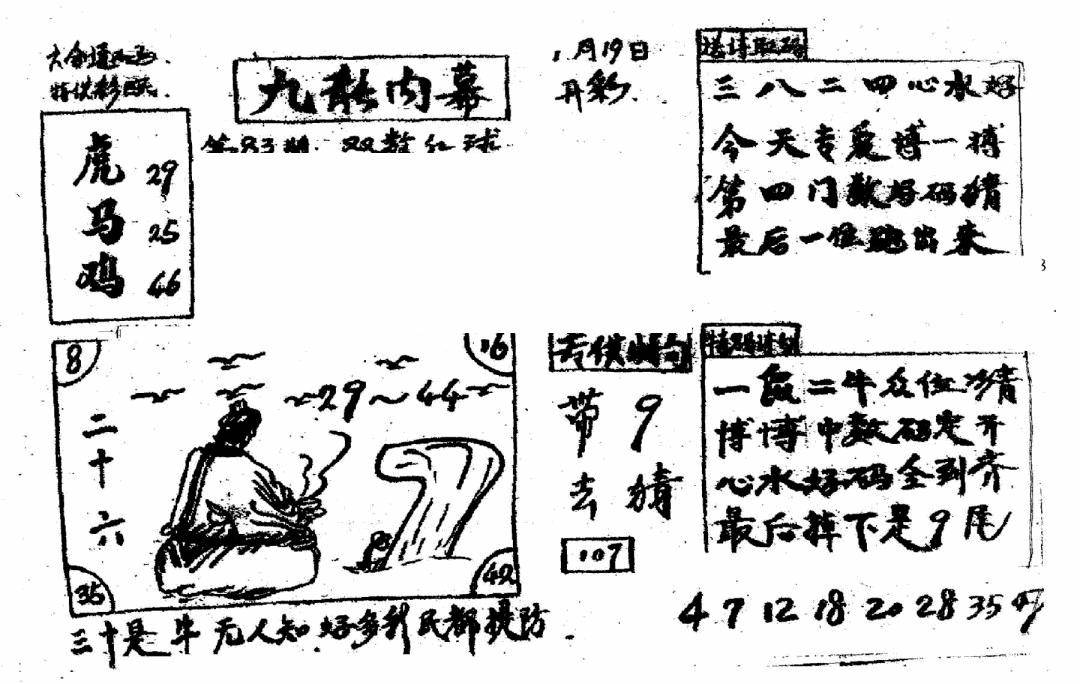 九龙内幕
1月19日
开彩.
第83期. 双数红球
虎 29
马 25
鸡 46
三八二四心水好
今天专爱博一搏
第四门数好码猜
最后一位跑出来
8
16
29～44
二十六
35
42
三十是牛无人知.好多彩民都提防.
专供猜句
带9
去猜
107
一鼠二牛众位猜
博博中数码定开
心水好码全到齐
最后掉下是9尾
4 7 12 18 20 28 35